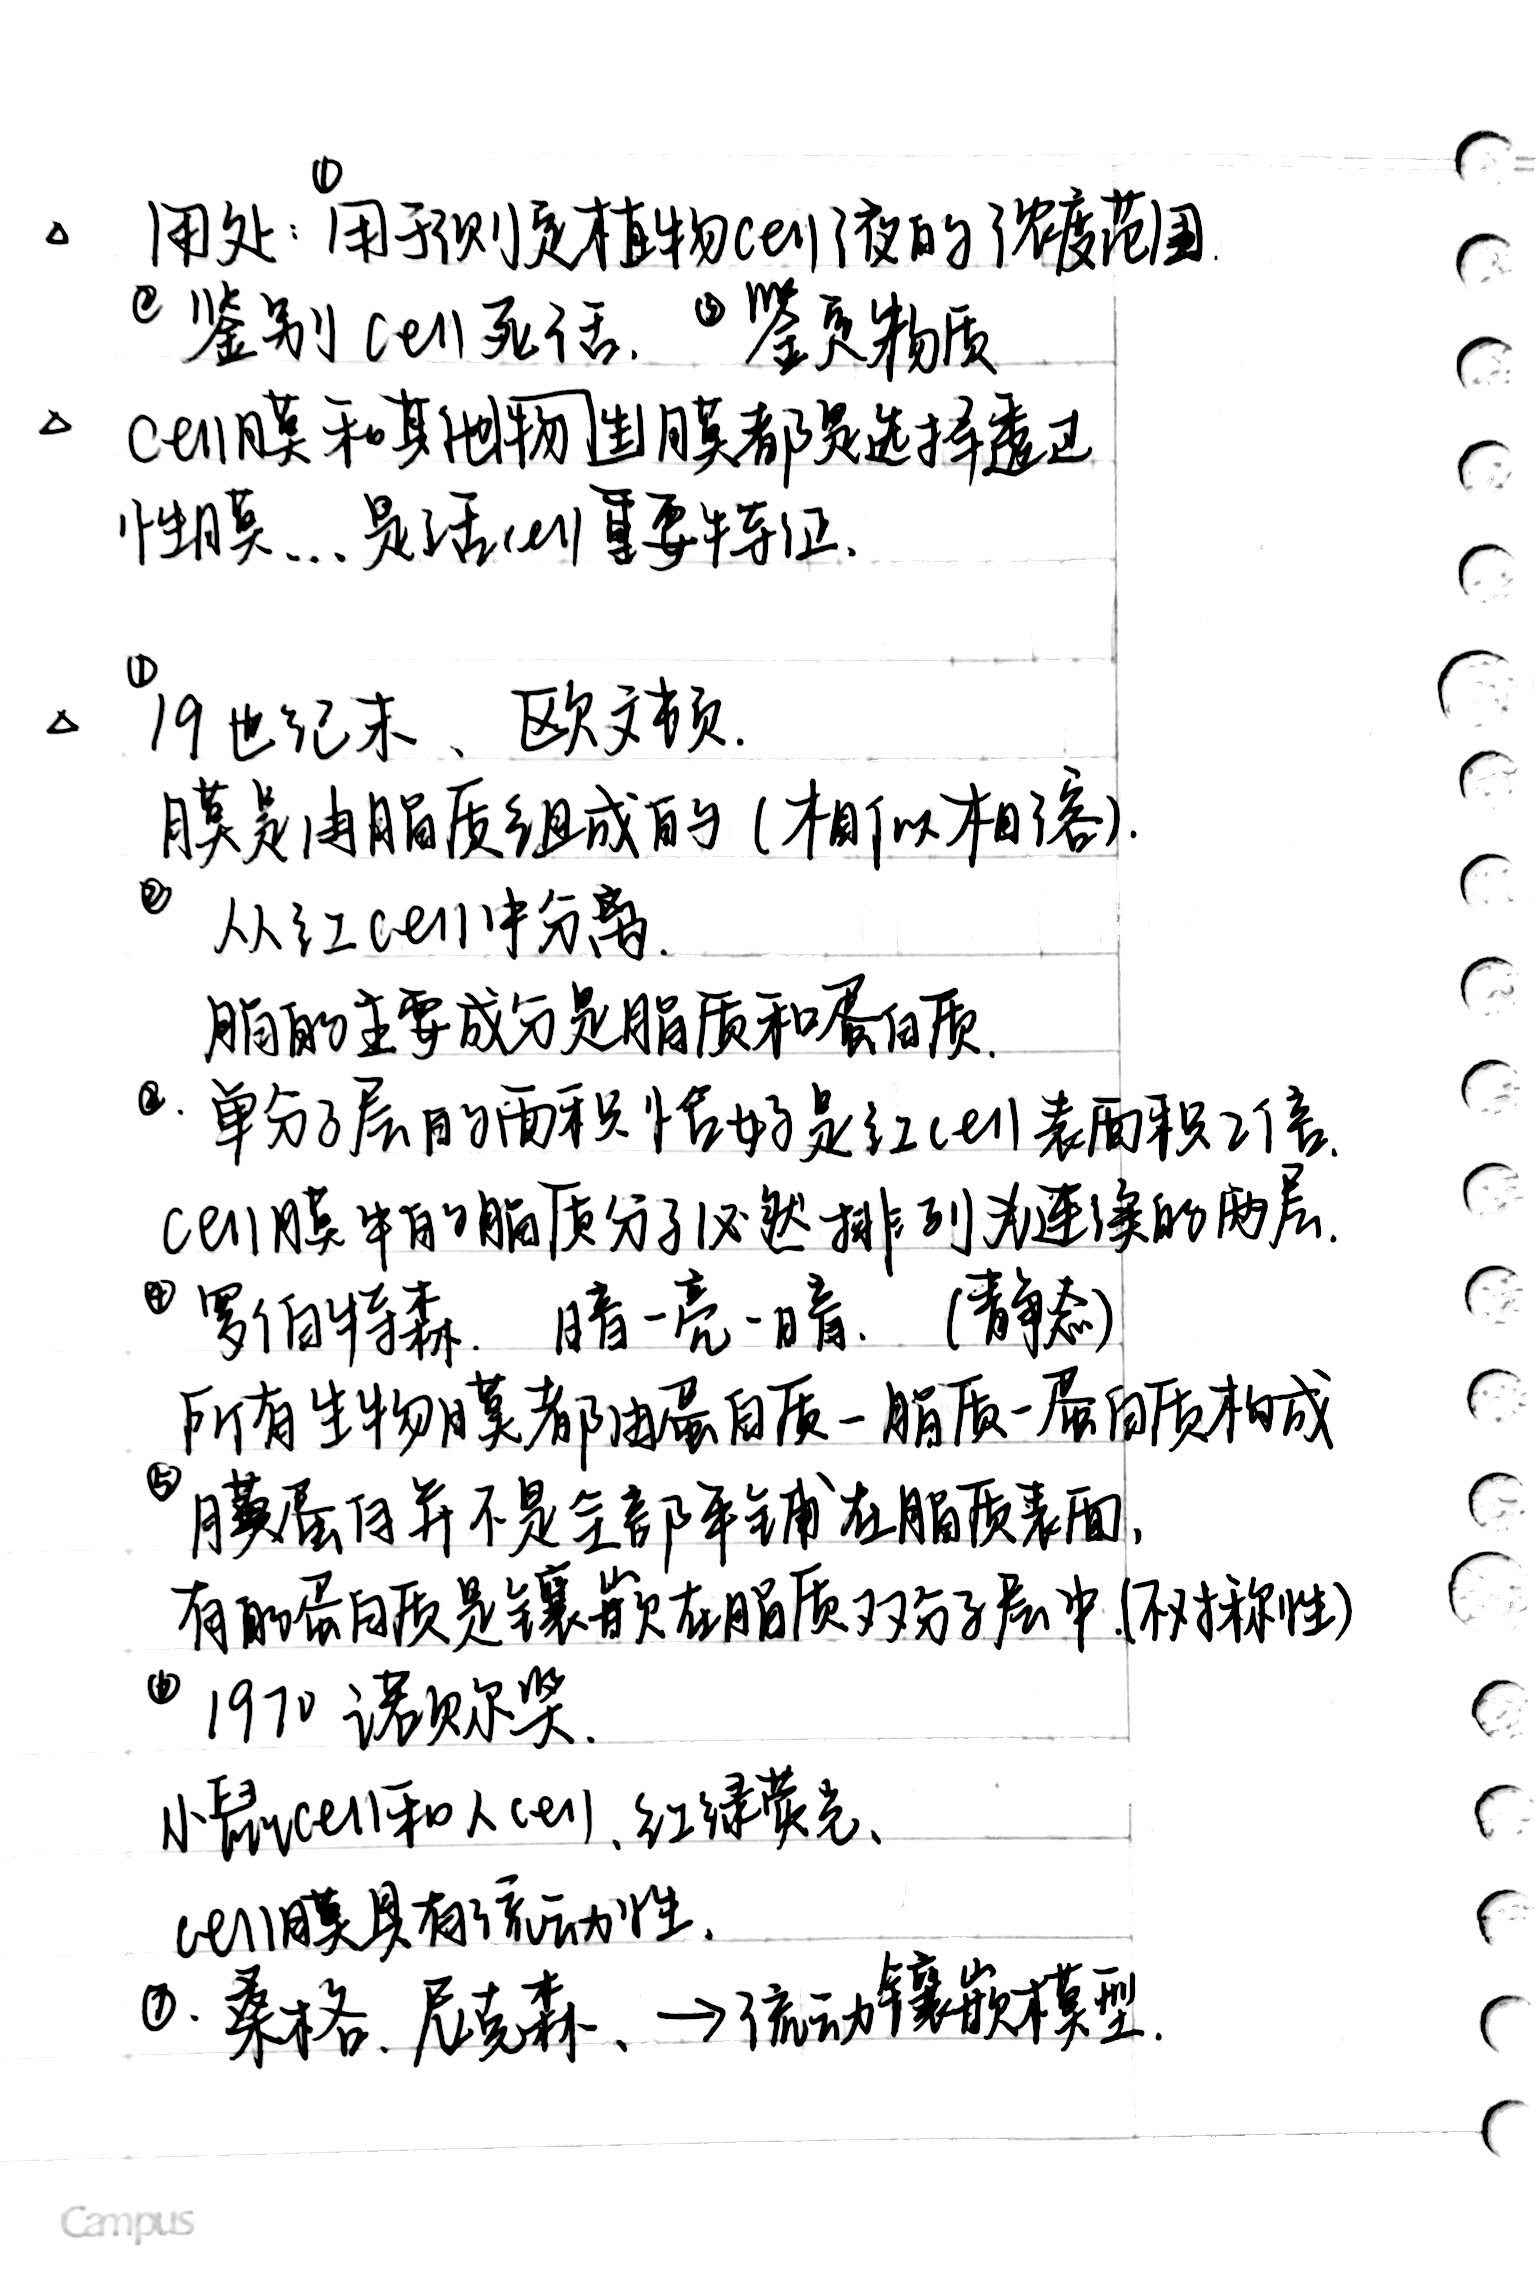 △ 用处:①用于测定植物cell液的浓度范围.
② 鉴别cell死活. ③鉴定物质
△ cell膜和其他物生膜都是选择透过
性膜...是活cell重要特征.
△ ①19世纪末、欧文顿.
膜是由脂质组成的(相似相溶).
② 从红cell中分离.
脂的主要成分是脂质和蛋白质.
③. 单分子层的面积恰好是红cell表面积2倍.
cell膜中的脂质分子必然排列为连续的两层.
④ 罗伯特森. 暗-亮-暗. (静态)
所有生物膜都由蛋白质-脂质-蛋白质构成
⑤ 膜蛋白并不是全部平铺在脂质表面,
有的蛋白质是镶嵌在脂质双分子层中.(不对称性)
⑥ 1970 诺贝尔奖.
小鼠cell和人cell、红绿荧光、
cell膜具有流动性.
⑦. 桑格、尼克森、→流动镶嵌模型.
Campus